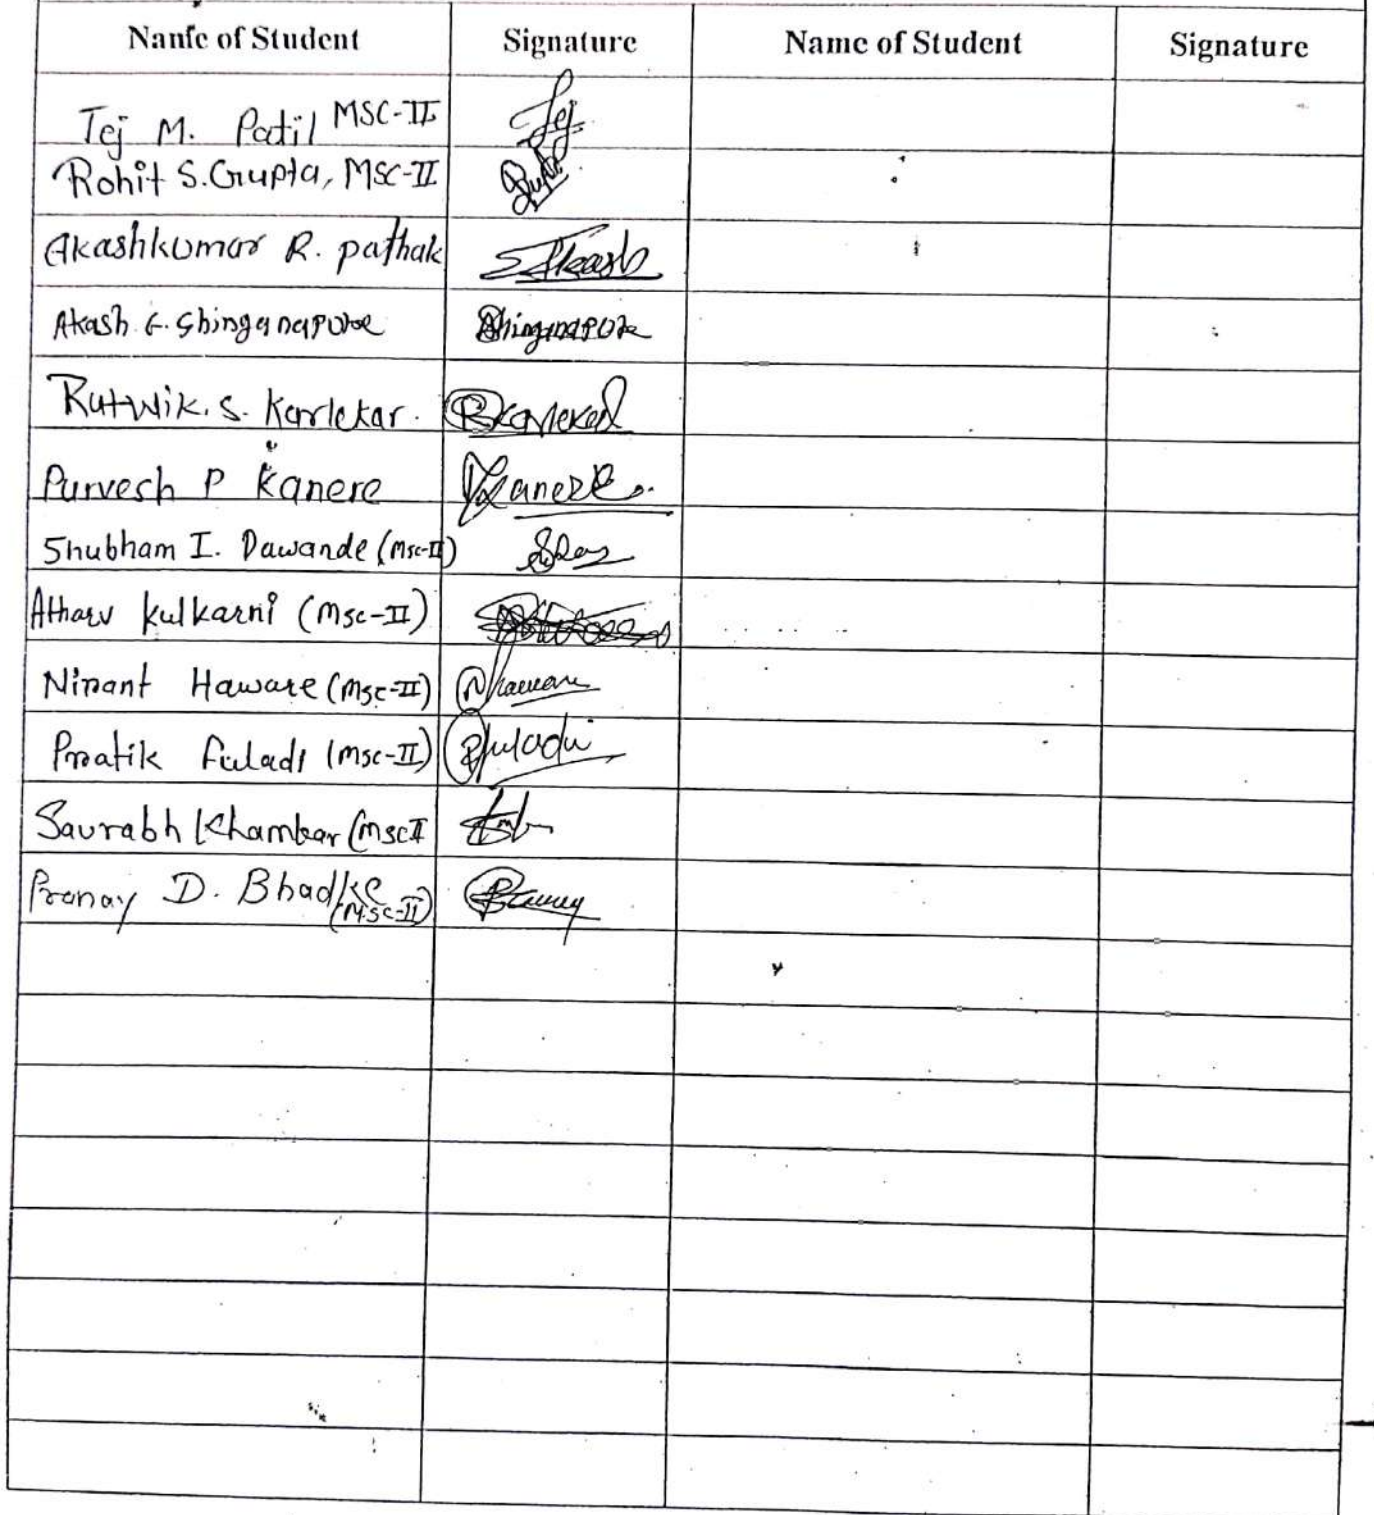 Name of Student Signature Name of Student Signature
Tej M. Patil MSC-II Tej
Rohit S. Gupta, MSC-II
Akashkumar R. pathak Akash
Akash G. Shinganapure Shinganapure
Rutwik. S. Karlekar. RKarlekar
Purvesh P Kanere Kanere.
Shubham I. Dawande (Msc-II)
Atharv Kulkarni (Msc-II)
Ninant Haware (Msc-II) NHaware
Pratik Fuladi (Msc-II) Pfuladi
Saurabh Khambar (Msc II
Pranay D. Bhadke Pranay
(M.Sc-II)